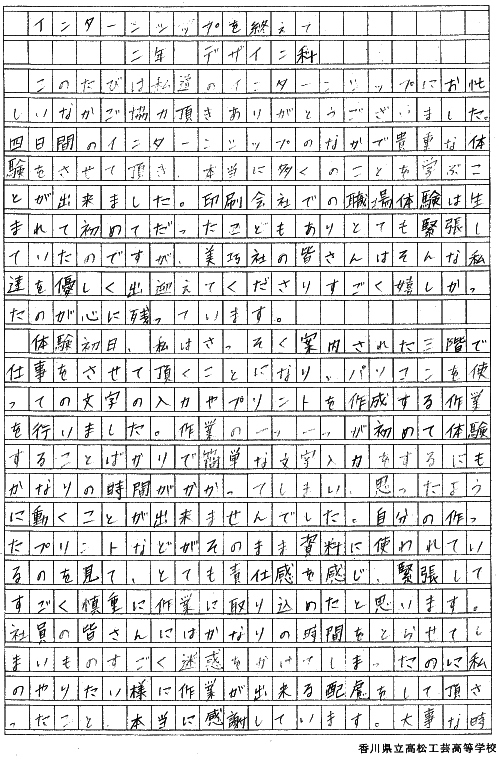 インターンシップを終えて
二年 デザイン科
このたびは私達のインターンシップにお忙
しいなかご協力頂きありがとうございました。
四日間のインターンシップのなかで貴重な体
験をさせて頂き、本当に多くのことを学ぶこ
とが出来ました。印刷会社での職場体験は生
まれて初めてだったこともありとても緊張し
ていたのですが、美巧社の皆さんはそんな私
達を優しく出迎えてくださりすごく嬉しかっ
たのが心に残っています。
体験初日、私はさっそく案内された三階で
仕事をさせて頂くことになり、パソコンを使
っての文字の入力やプリントを作成する作業
を行いました。作業の一つ一つが初めて体験
することばかりで簡単な文字入力をするにも
かなりの時間がかかってしまい、思ったよう
に動くことが出来ませんでした。自分の作っ
たプリントなどがそのまま資料に使われてい
るのを見て、とても責任感を感じ、緊張して
すごく慎重に作業に取り込めたと思います。
社員の皆さんにはかなりの時間をとらせてし
まいものすごく迷惑をかけてしまったのに私
のやりたい様に作業が出来る配慮をして頂さ
ったこと、本当に感謝しています。大事な時
香川県立高松工芸高等学校